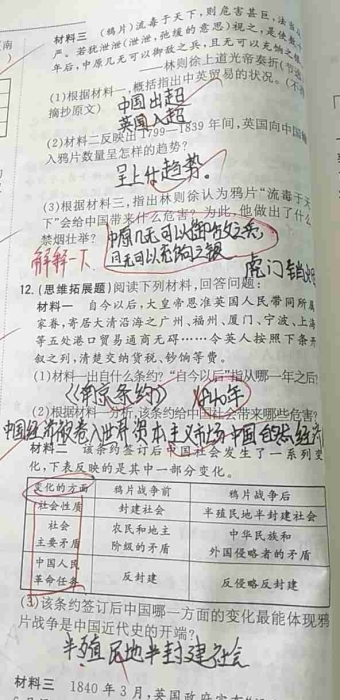 材料三 (鸦片)流毒于天下,则危害甚巨,法当
严。若犹泄泄(泄泄,弛缓的意思)视之,是使数十
年后,中原几无可以御敌之兵,且无可以充饷之银
——林则徐上道光帝奏折(节选)
(1)根据材料一,概括指出中英贸易的状况。(不
摘抄原文)
中国出超
英国入超
(2)材料二反映出1799—1839年间,英国向中国输
入鸦片数量呈怎样的趋势?
呈上升趋势。
(3)根据材料三,指出林则徐认为鸦片“流毒于天
下”会给中国带来什么危害?为此,他做出了什么
禁烟壮举?
中原几无可以御敌之兵,
且无可以充饷之银
解释一下
虎门销烟
12.(思维拓展题)阅读下列材料,回答问题:
材料一 自今以后,大皇帝恩准英国人民带同所属
家眷,寄居大清沿海之广州、福州、厦门、宁波、上海
等五处港口贸易通商无碍……令英人按照下条开
叙之列,清楚交纳货税、钞饷等费。
(1)材料一出自什么条约?“自今以后”指从哪一年之后?
《南京条约》 1840年
(2)根据材料一分析,该条约给中国社会带来哪些危害?
中国经济被卷入世界资本主义市场 中国自然经济
材料二 该条约签订后中国社会发生了一系列变
化,下表反映的是其中一部分变化。
变化的方面 鸦片战争前 鸦片战争后
社会性质 封建社会 半殖民地半封建社会
社会主要矛盾 农民和地主阶级的矛盾 中华民族和外国侵略者的矛盾
中国人民革命任务 反封建 反侵略反封建
(3)该条约签订后中国哪一方面的变化最能体现鸦
片战争是中国近代史的开端?
半殖民地半封建社会
材料三 1840年3月,英国政府宣布